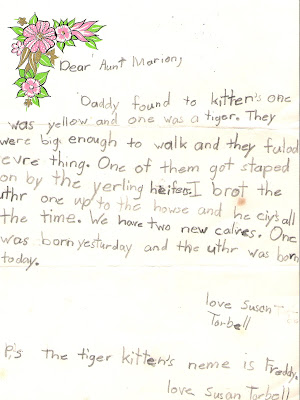 Dear Aunt Marion,
Daddy found to kitten's one
was yellow and one was a tiger. They
were big enough to walk and they fulod
evre thing. One of them got staped
on by the yerling heifers. I brot the
uthr one up to the house and he ciy's all
the time. We have two new calves. One
was born yesturday and the uthr was born
today.
love Susan
Torbell
P.s the tiger kitten's neme is Freddy.
love Susan Torbell